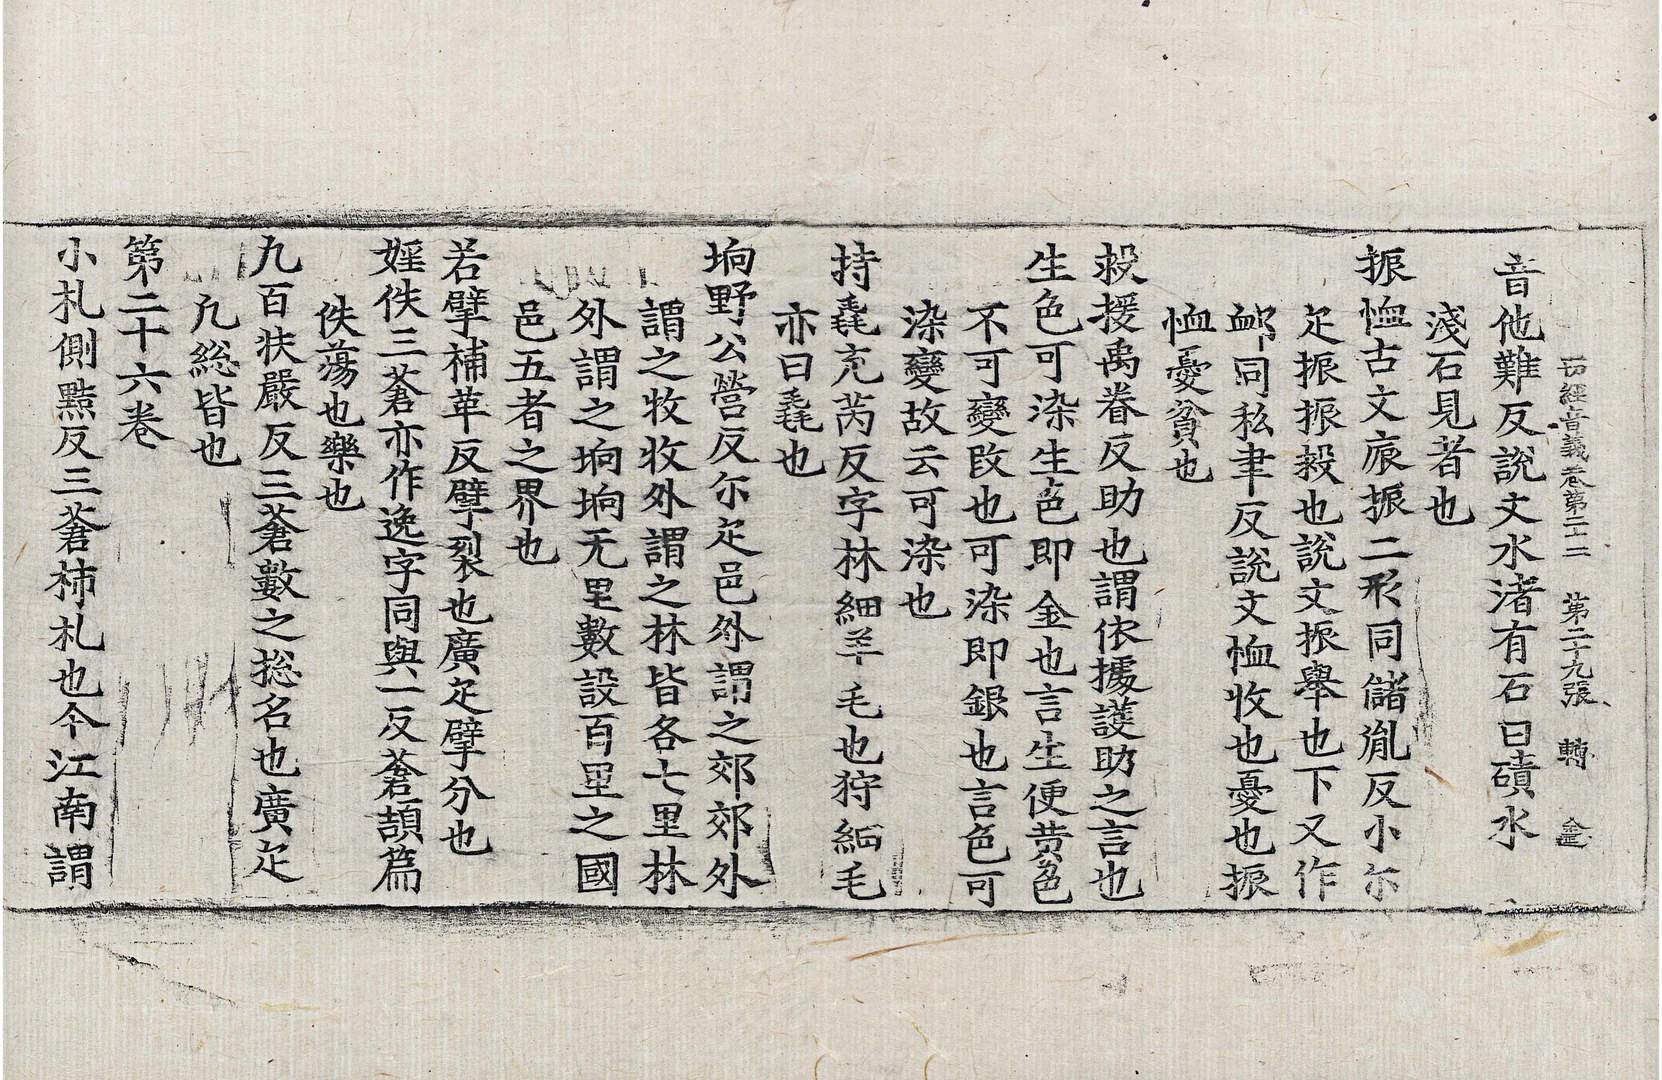 一切經音義卷第二十二　第二十九張　轉　𨥥
音他難反說文水渚有石曰磧水
淺石見者也
振恤古文𢈪振二形同儲胤反小尒
疋振振救也說文振舉也下又作
䘏同私聿反說文恤收也憂也振
恤憂貧也
救援禹眷反助也謂依據護助之言也
生色可染生色即金也言生便黄色
不可變改也可染即銀也言色可
染變故云可染也
持毳充芮反字林細羊毛也狩細毛
亦曰毳也
坰野公營反尒疋邑外謂之郊郊外
謂之牧牧外謂之林皆各七里林
外謂之坰坰无里數設百里之國
邑五者之界也
若擘補革反擘裂也廣疋擘分也
婬佚三蒼亦作逸字同與一反蒼頡篇
佚蕩也樂也
九百㹜嚴反三蒼數之揔名也廣疋
凡総皆也
第二十六卷
小札側黠反三蒼柿札也今江南謂